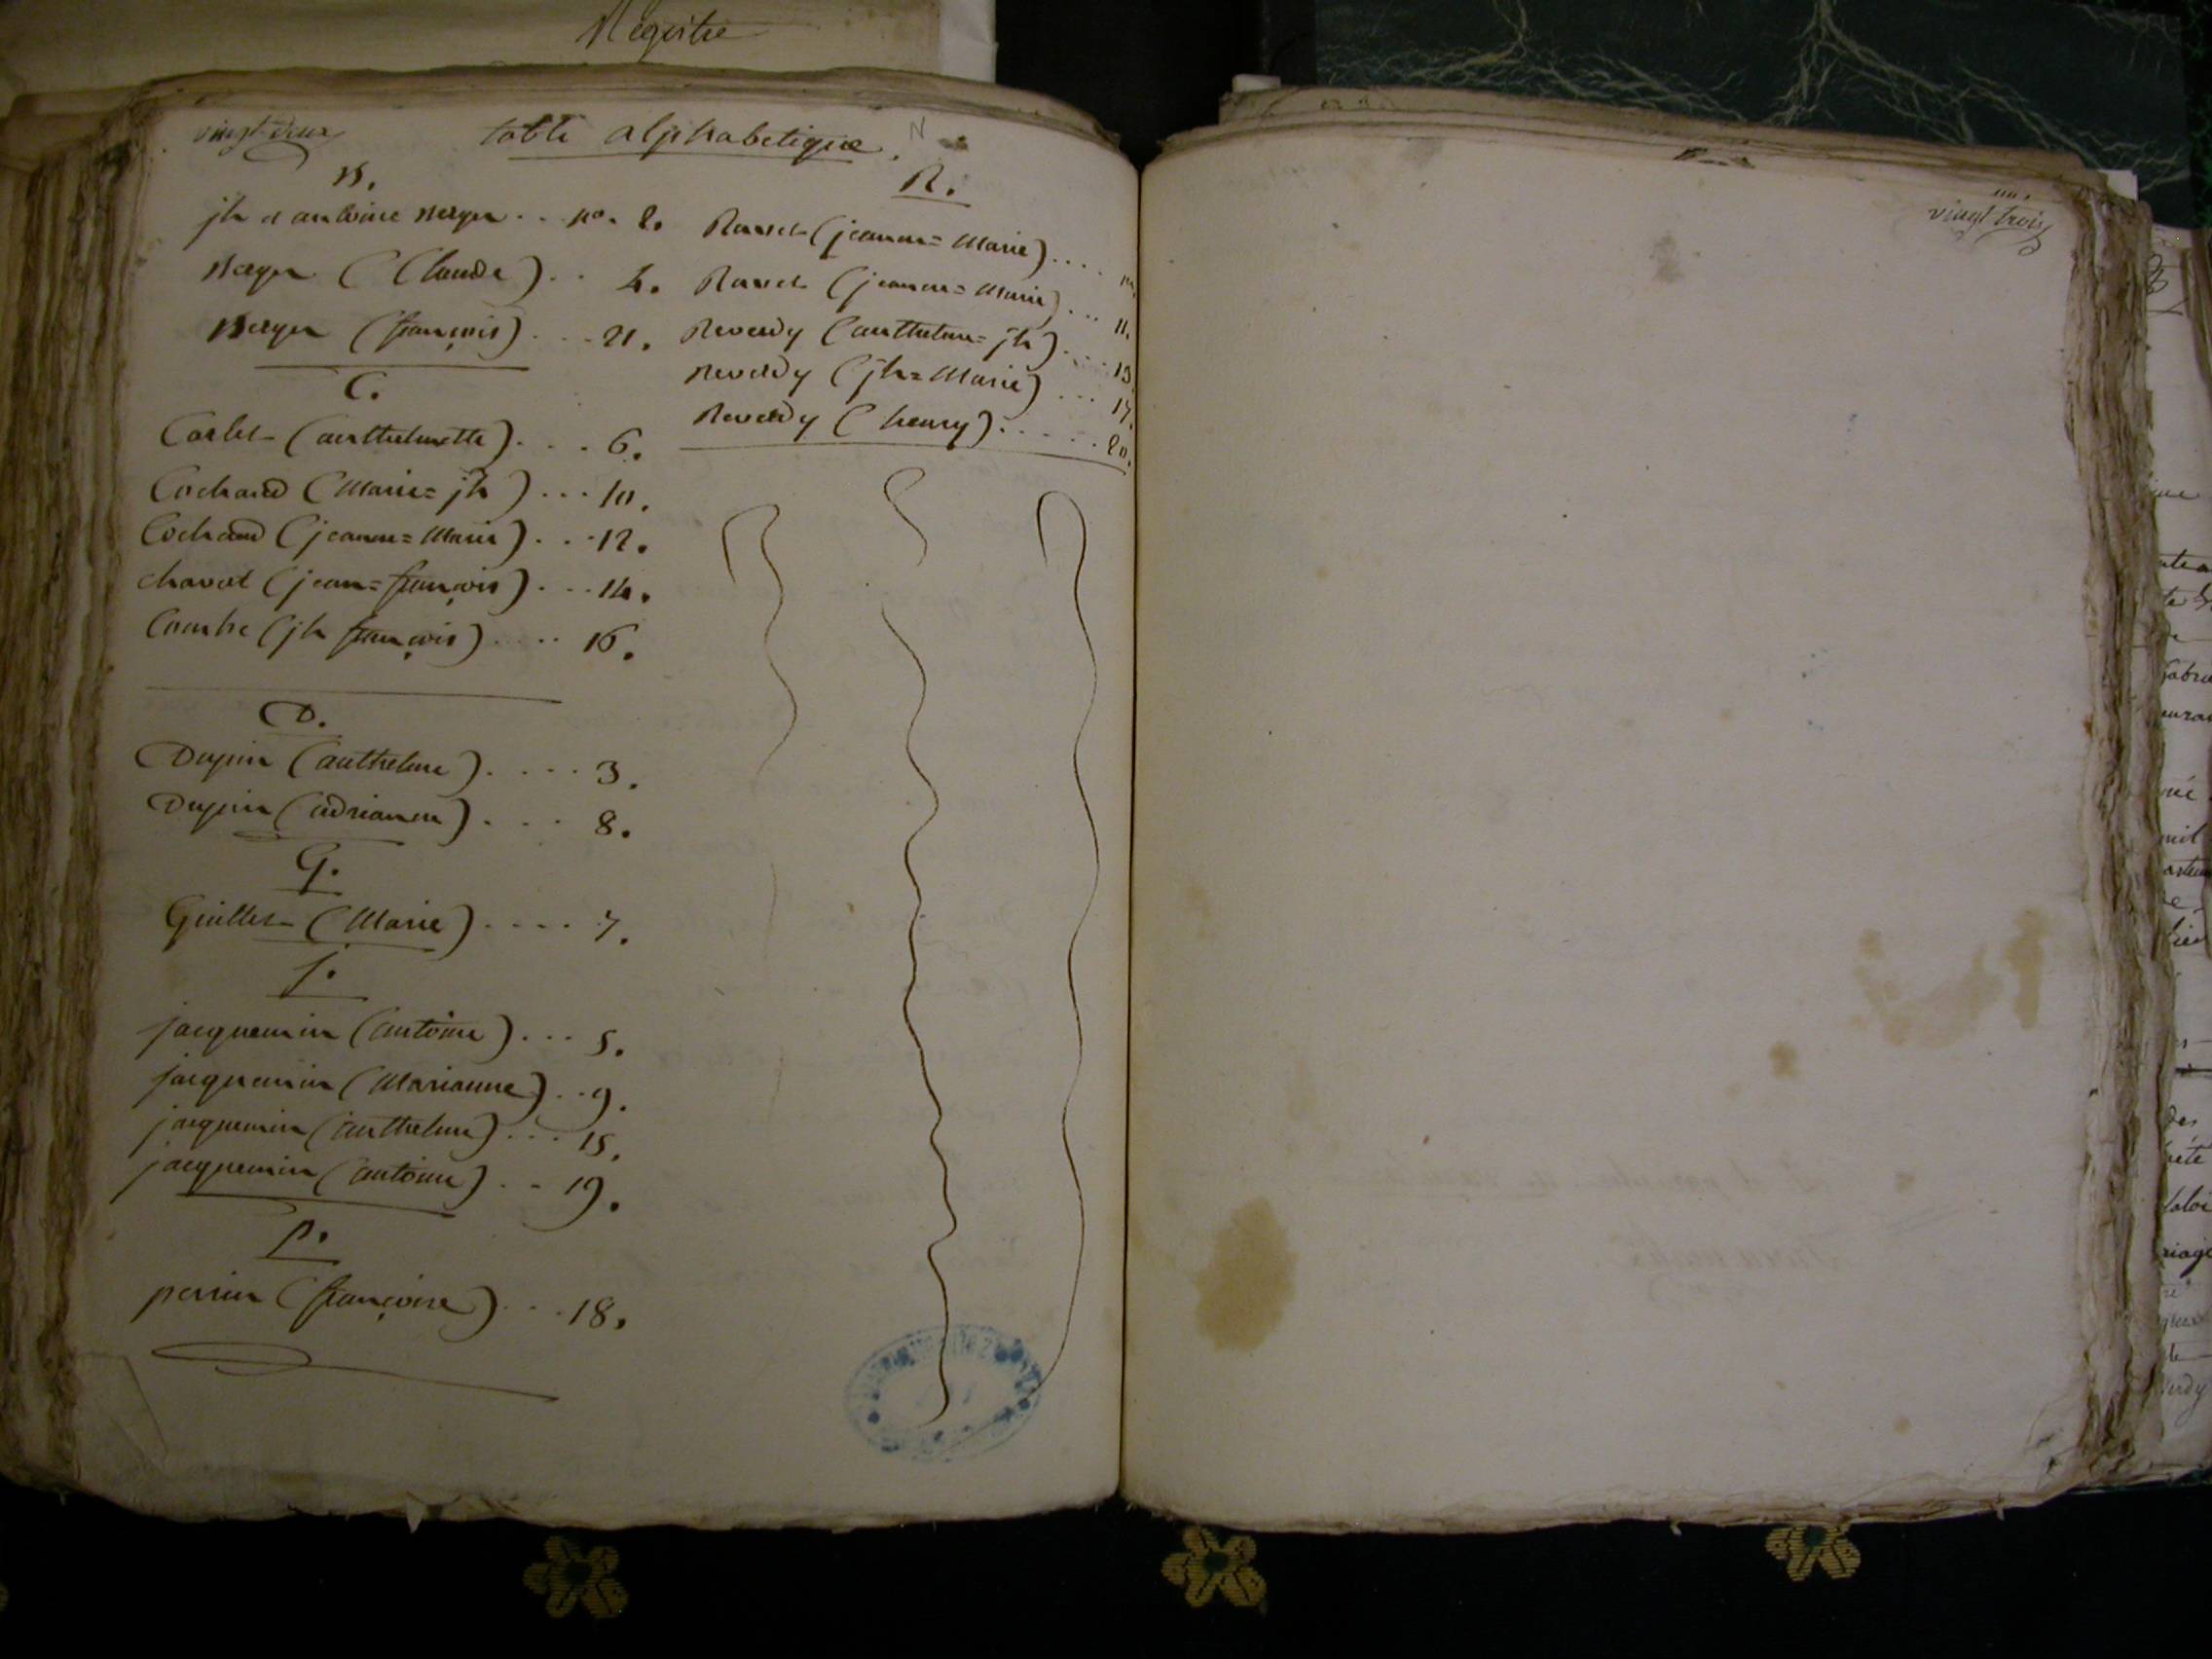 Registre
vingt-deux
table alphabetique
B.
jh et antoine Berger .. no. 2.
Berger (Claude) .. 4.
Berger (françois) ... 21.
C.
Corlet (anthelmette) .... 6.
Cochand (Marie=jh) ... 10.
Cochand (jeanne=Marie) ... 12.
chavot (jean=françois) ... 14.
Combe (jh françois) .... 16.
D.
Dupin (anthelme) .... 3.
Dupin (adrianne) .... 8.
G.
Guillet (Marie) .... 7.
J.
jacquemin (antoine) ... 5.
jacquemin (Marianne) .. 9.
jacquemin (anthelme) ... 15.
jacquemin (antoine) .. 19.
p.
perrin (françoise) ... 18.
R.
Ravet (jeanne=Marie) ....
Ravet (jeanne=Marie) ... 11.
Reverdy (anthelme=jh) .... 13.
Reverdy (jh=Marie) ... 17.
Reverdy (henry) ..... 20.
vingt trois